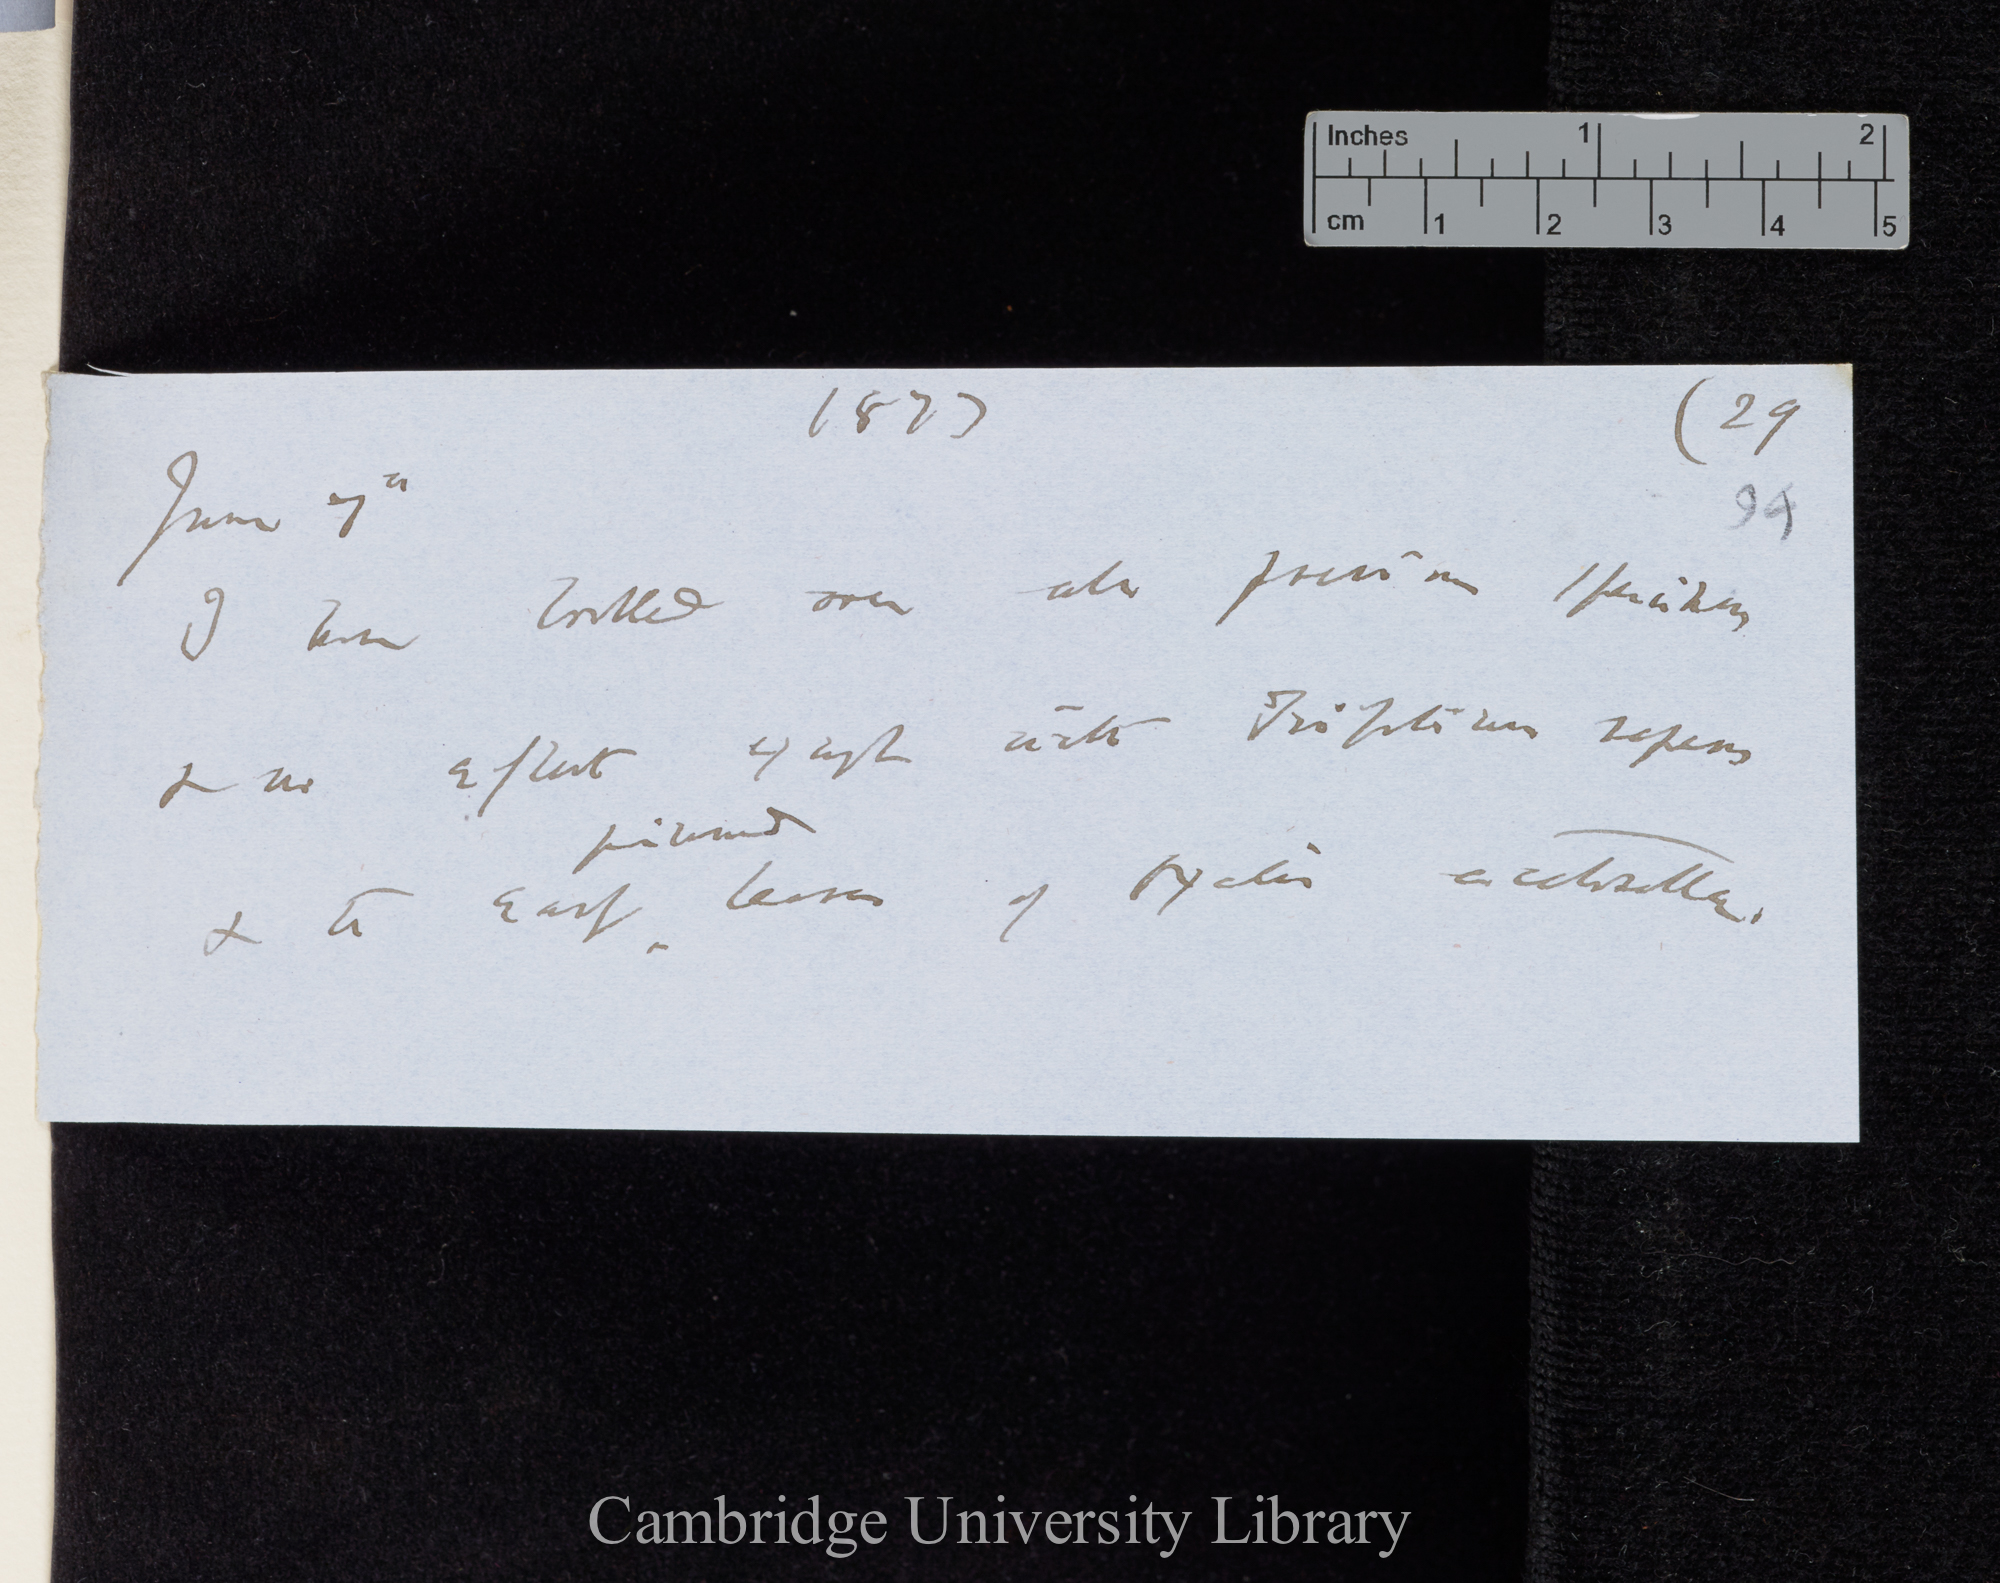 Inches 1 2
cm 1 2 3 4 5
1877 (29
94
June 7th
I have looked over all previous specimens
& no effect except with Trifolium repens
& the early pinned leaves of Oxalis acetosella.
Cambridge University Library